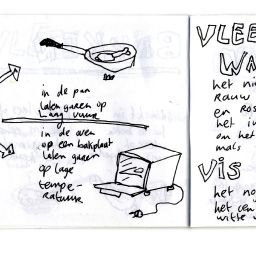 in de pan
laten garen op
laag vuur
in de oven
op een bakplaat
laten garen
op lage
tempe-
ratuur
VLEE
WA
het ni
rauw
en ros
het i
om het
mals
VIS
het no
het cen
witte v